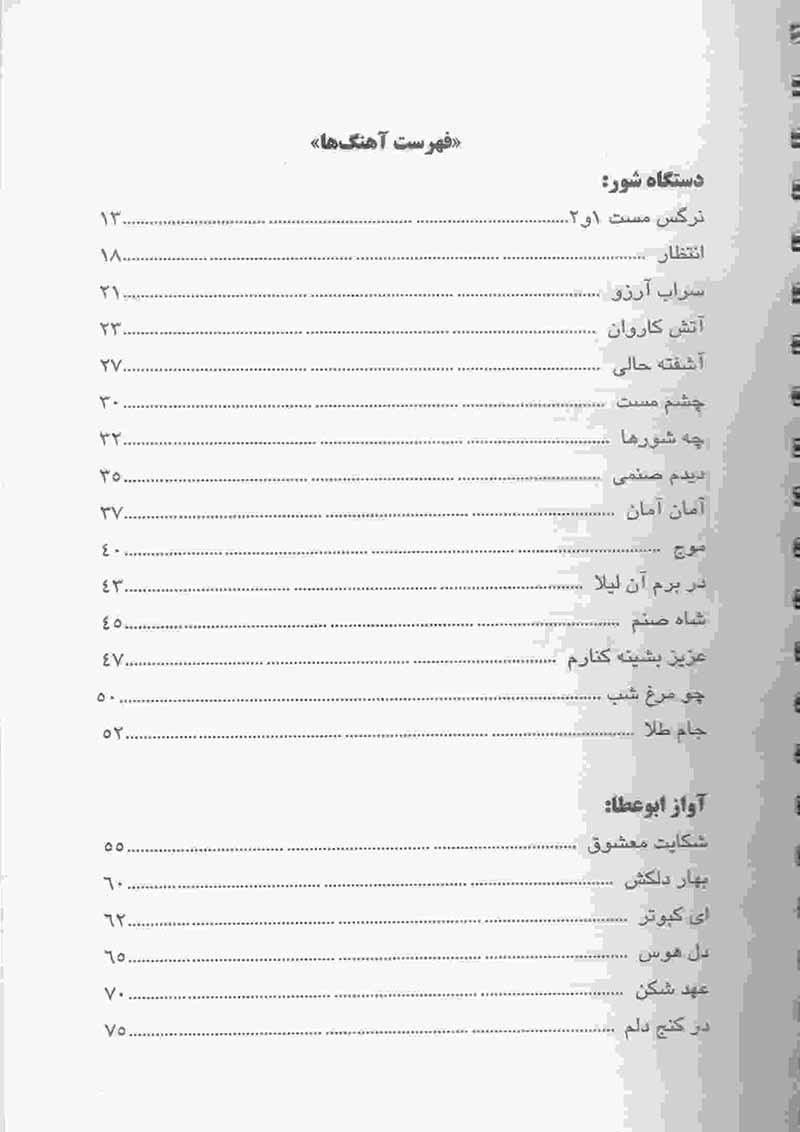 «فهرست آهنگ‌ها»
دستگاه شور:
نرگس مست ۱و۲ ........ ۱۳
انتظار ........ ۱۸
سراب آرزو ........ ۲۱
آتش کاروان ........ ۲۳
آشفته حالی ........ ۲۷
چشم مست ........ ۳۰
چه شورها ........ ۳۲
دیدم صنمی ........ ۳۵
آمان آمان ........ ۳۷
موج ........ ٤۰
در برم آن لیلا ........ ٤۳
شاه صنم ........ ٤۵
عزیز بشینه کنارم ........ ٤۷
چو مرغ شب ........ ۵۰
جام طلا ........ ۵۲
آواز ابوعطا:
شکایت معشوق ........ ۵۵
بهار دلکش ........ ٦۰
ای کبوتر ........ ٦۲
دل هوس ........ ٦۵
عهد شکن ........ ۷۰
در کنج دلم ........ ۷۵